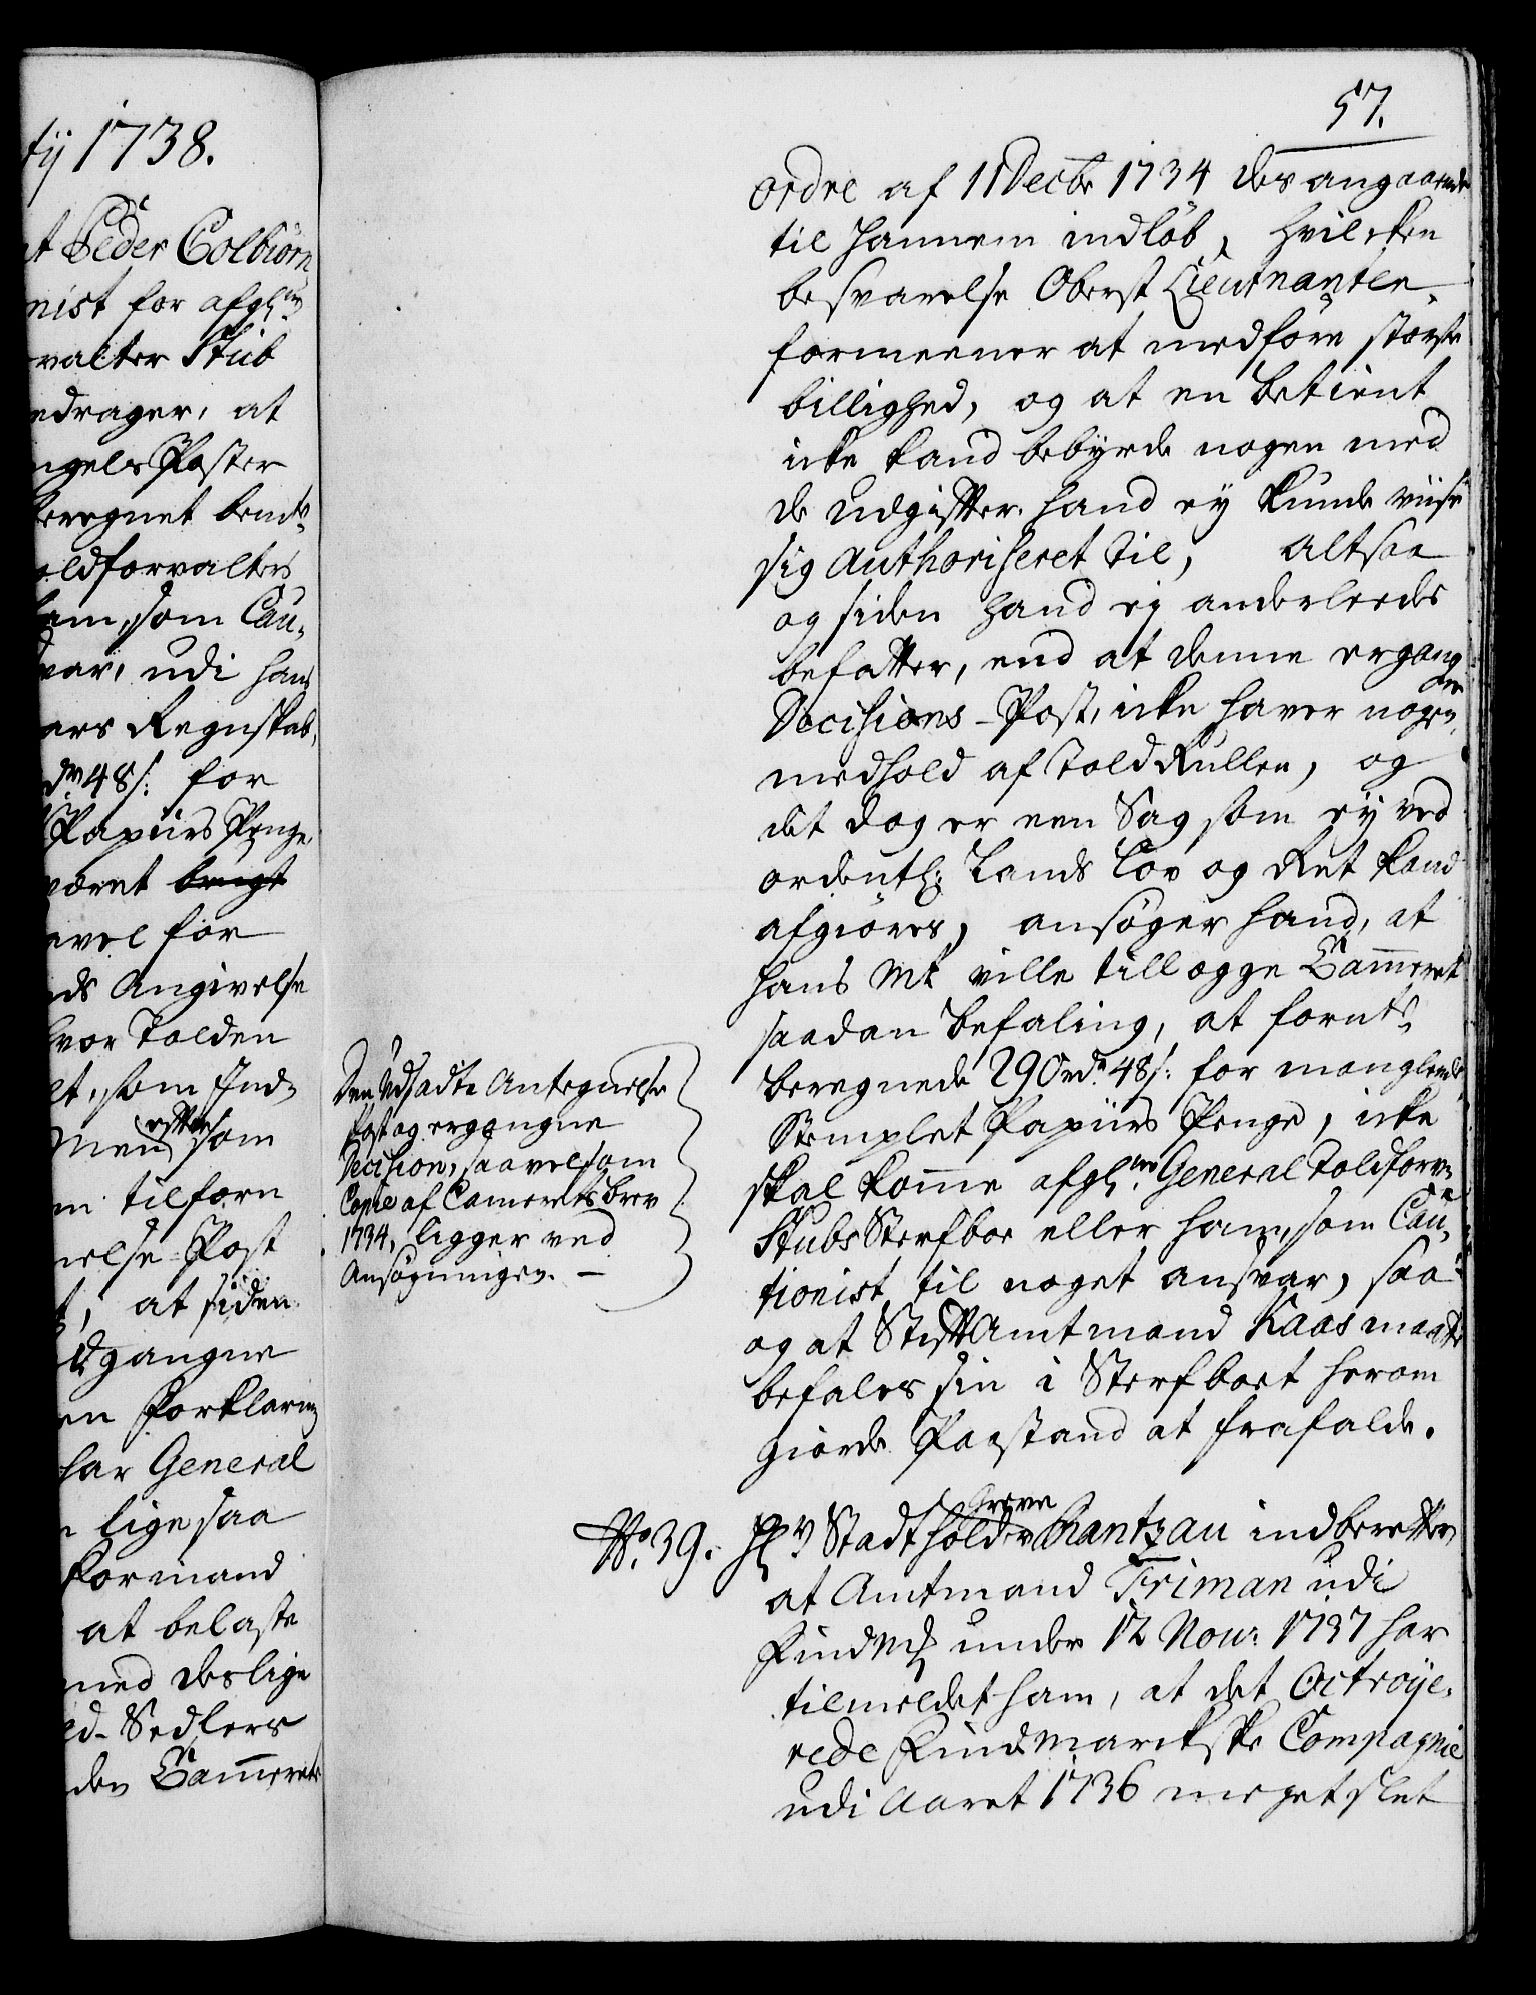 tij 1738.
t Peder Colbiörn
nist for afgl:
valter Stub
edrager, at
ngels Poster
beregnet bemte
oldforvalters
ham, som Cau-
var, udi hans
ars Regnskab,
dr 48 s: for
Papiirs Penge
været brugt
avel for
ds Angivelse
hvor Tolden
et, som Ind-
Men efter som
m tilforn
nelse-Post
t, at siden
dgangne
en Forklaring
har General
lige saa
Formand
at belaste
med deslige
ed-Sedlers
den Cammerets
57.
ordre af 11 Decbr 1734 des angaaende
til hannem indløb, hvilcken
besvarelse Oberst Lieutnanten
formeener at medføre største
billighed, og at en betient
icke kand bebyrde nogen med
de Udgifter hand ey kunde viise
sig Authoriseret til, altsaa
og siden hand ey anderleedes
befatter, end at denne ergang
ne
Decisions-Post, icke haver nogen
medhold af Told Rullen, og
det dog er een Sag som ey ved
ordentl: Lands Lov og Ret kand
afgiöres, ansøger hand, at
hans Mt ville tillegge Cammeret
saadan befaling, at fornte
beregnede 290 rdr 48 s: for manglende
Stemplet Papiirs Penge, icke
skal komme afgl: General Toldforv-
Stubs Sterfboe eller ham, som Cau-
tionist til noget ansvar, saa
og at Stift Amtmand Kaas maatte
befales sin i Sterfboet herom
giorde Paastand at frafalde.
Den Udsadte Antegnelse
Post og ergangne
Decision, saavelsom
Copie af Camerets brev
1734, ligger ved
Ansøgningen. –
No. 39. Hr Stadtholder Greve Rantzau indberetter
at Amtmand Friman udi
Findm: under 12 Nov: 1737 har
tilmeldet ham, at det Octroye-
rede Findmarckske Compagnie
udi Aaret 1736 meget slet